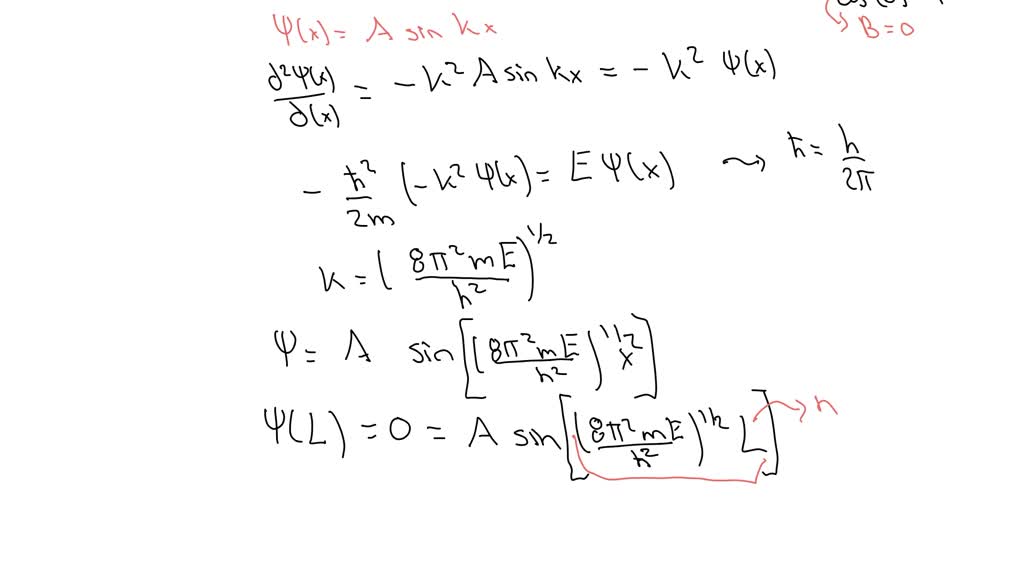 ψ(x) = A sin kx
B = 0
∂²ψ(x)/∂(x) = - k² A sin kx = - k² ψ(x)
- ħ²/2m (-k² ψ(x) = E ψ(x) ⇝ ħ = h/2π
k = (8π²mE/h²)^1/2
ψ = A sin[(8π²mE/h²)^1/2 x]
ψ(L) = 0 = A sin[(8π²mE/h²)^1/2 L] → n